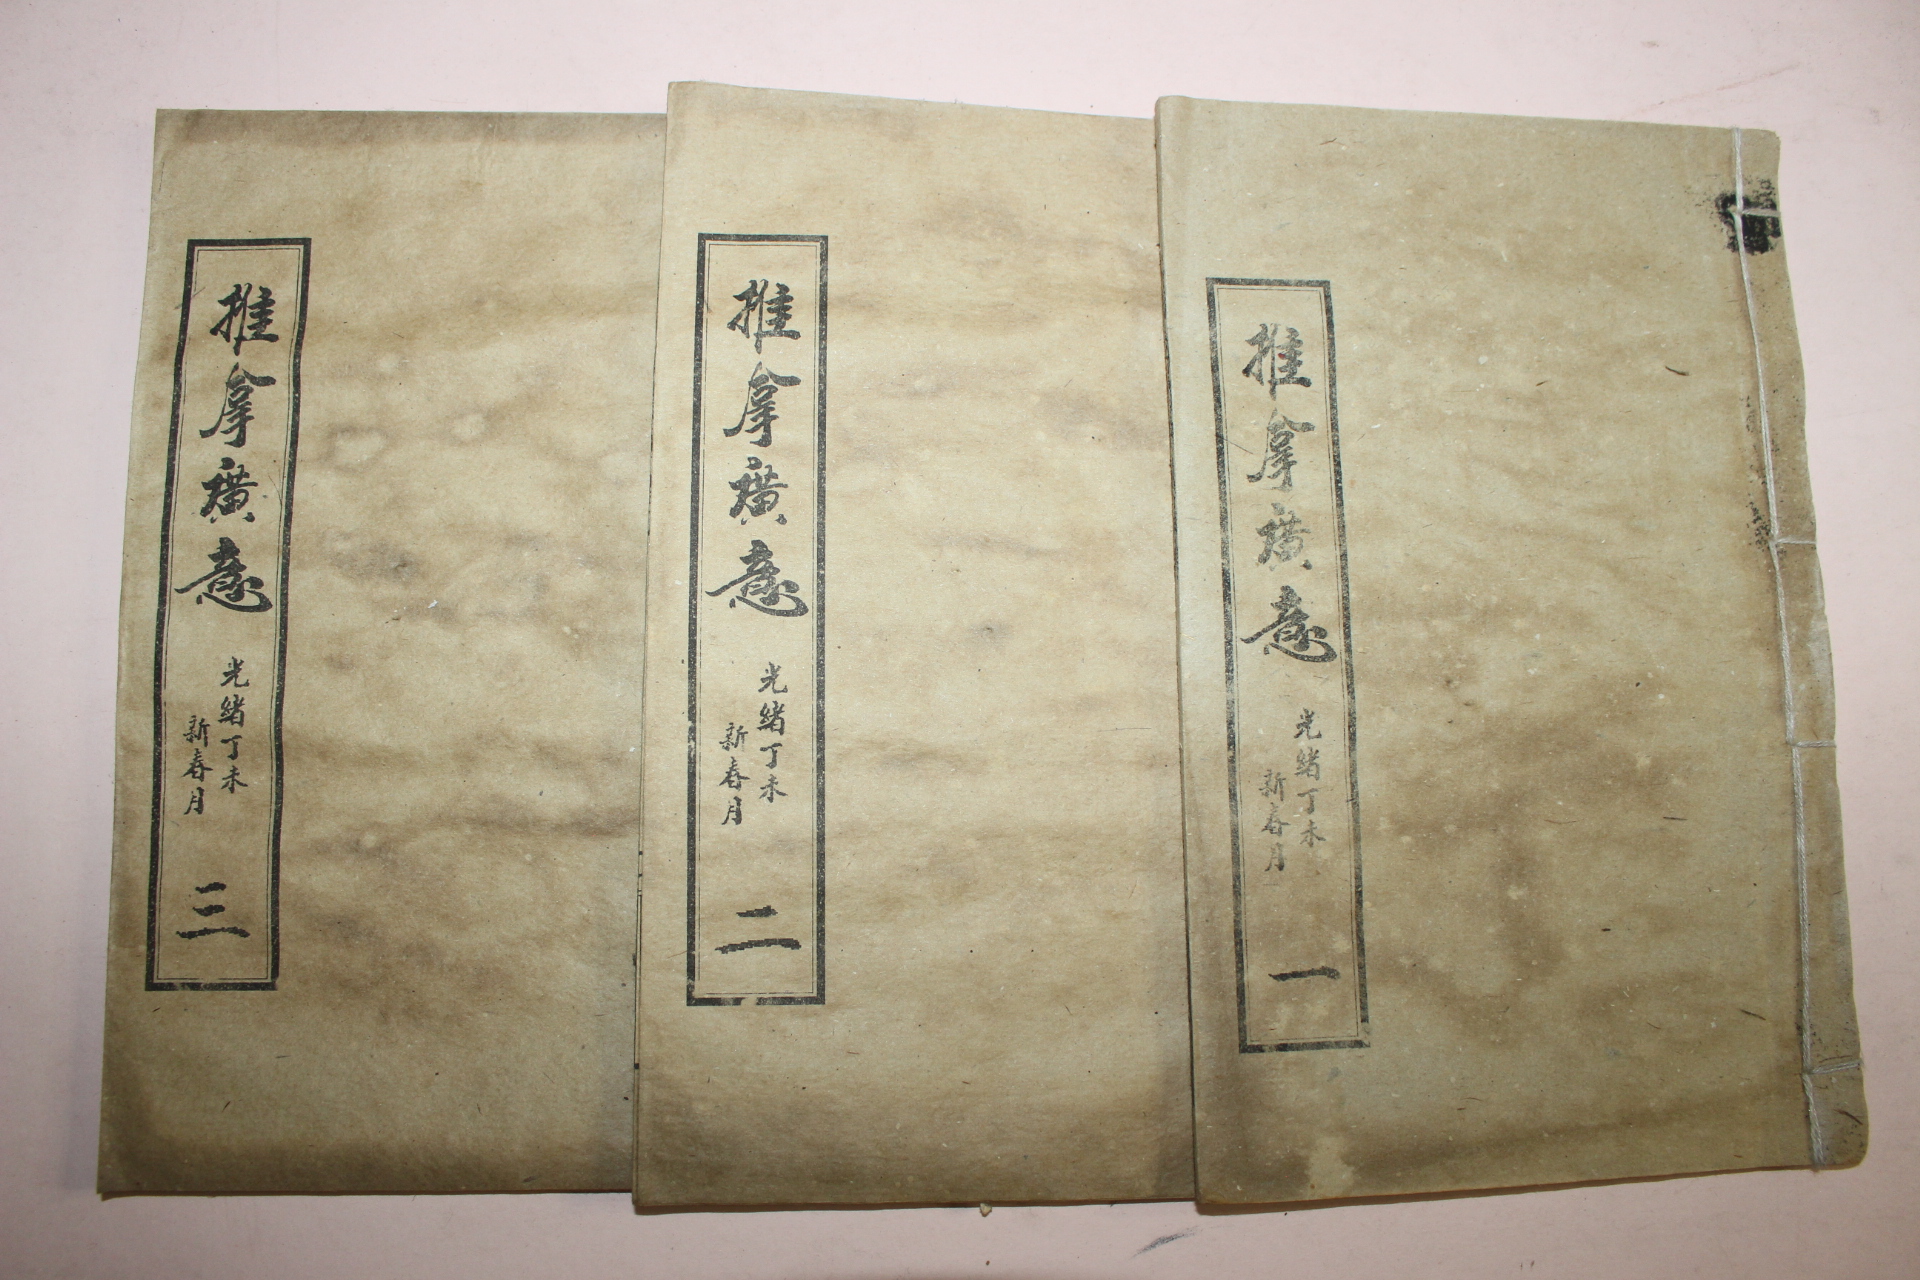 推拿廣意
光緒丁未
新春月
一
推拿廣意
光緒丁未
新春月
二
推拿廣意
光緒丁未
新春月
三